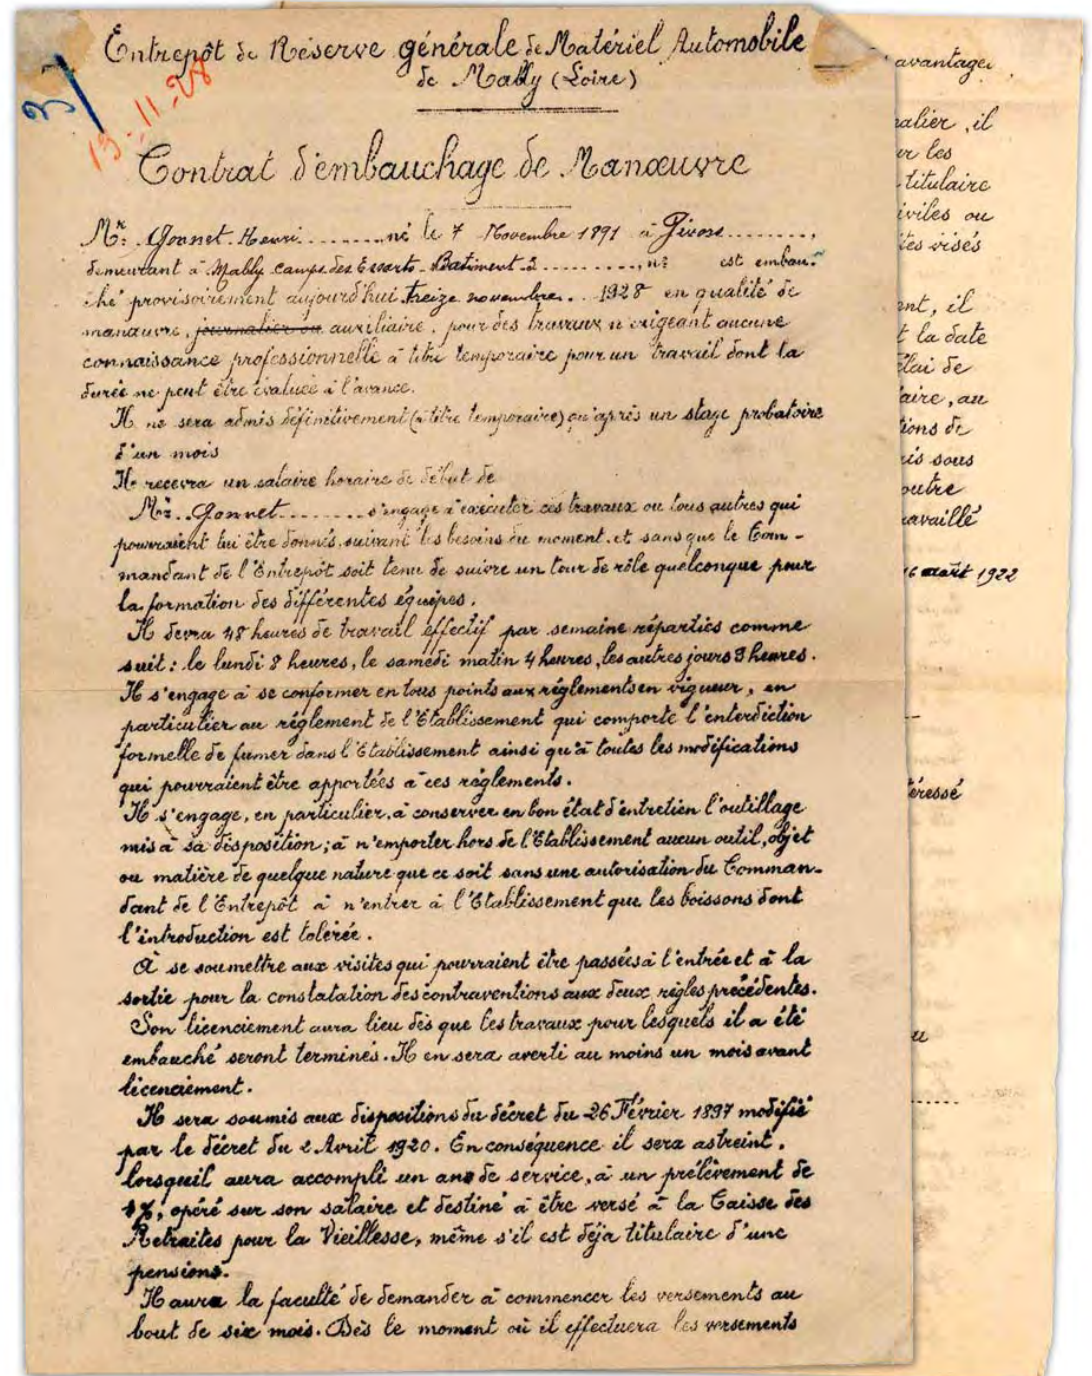 Entrepôt de Réserve générale de Matériel Automobile
de Mably (Loire)
37
13-11-28
Contrat d'embauchage de Manœuvre
Mr: Gonnet Henri..........né le 7 Novembre 1891 à Givors.........,
demeurant à Mably camp des Essarts Batiment 2 .........., n: est embau-
ché provisoirement aujourd'hui treize novembre.. 1928 en qualité de
manœuvre, journalier ou auxiliaire, pour des travaux n'exigeant aucune
connaissance professionnelle à titre temporaire pour un travail dont la
durée ne peut être évaluée à l'avance.
Il ne sera admis définitivement (à titre temporaire) qu'après un stage probatoire
d'un mois
Il recevra un salaire horaire de début de
Mr: ..Gonnet.......... s'engage à exécuter ces travaux ou tous autres qui
pourraient lui être donnés, suivant les besoins du moment, et sans que le Com-
mandant de l'Entrepôt soit tenu de suivre un tour de rôle quelconque pour
la formation des différentes équipes.
Il devra 48 heures de travail effectif par semaine réparties comme
suit: le lundi 8 heures, le samedi matin 4 heures, les autres jours 9 heures.
Il s'engage à se conformer en tous points aux réglements en vigueur, en
particulier au réglement de l'Etablissement qui comporte l'interdiction
formelle de fumer dans l'Etablissement ainsi qu'à toutes les modifications
qui pourraient être apportées à ces réglements.
Il s'engage, en particulier, à conserver en bon état d'entretien l'outillage
mis à sa disposition; à n'emporter hors de l'Etablissement aucun outil, objet
ou matière de quelque nature que ce soit sans une autorisation du Comman-
dant de l'Entrepôt à n'entrer à l'Etablissement que les boissons dont
l'introduction est tolérée.
A se soumettre aux visites qui pourraient être passées à l'entrée et à la
sortie pour la constatation des contraventions aux deux règles précédentes.
Son licenciement aura lieu dès que les travaux pour lesquels il a été
embauché seront terminés. Il en sera averti au moins un mois avant
licenciement.
Il sera soumis aux dispositions du décret du 26 Février 1897 modifié
par le décret du 2 Avril 1920. En conséquence il sera astreint,
lorsqu'il aura accompli un an de service, à un prélèvement de
4%, opéré sur son salaire et destiné à être versé à la Caisse des
Retraites pour la Vieillesse, même s'il est déja titulaire d'une
pension.
Il aura la faculté de demander à commencer les versements au
bout de six mois. Dès le moment où il effectuera les versements
avantages
nalier, il
er les
titulaire
iviles ou
tes visés
ent, il
t la date
élai de
aire, au
tions de
ris sous
outre
ravaillé
16 août 1922
éressé